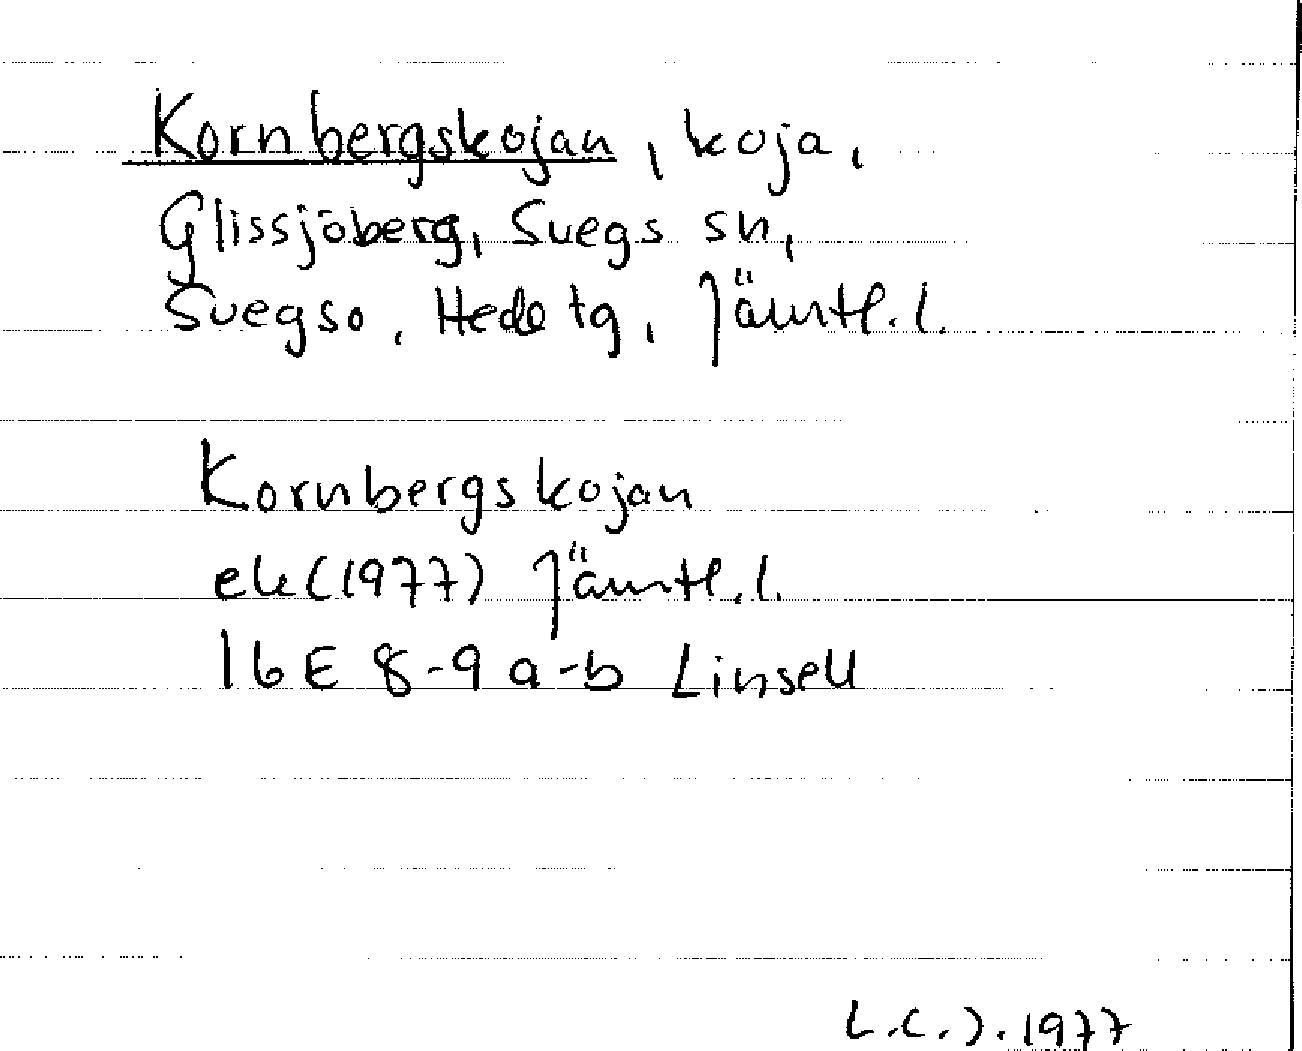 Kornbergskojan, koja,
Glissjöberg, Svegs sn,
Svegs o, Hede tg, Jämtl. l.
Kornbergskojan
ek (1977) Jämtl. l.
16 E 8-9 a-b Linsell
L.C.J. 1977